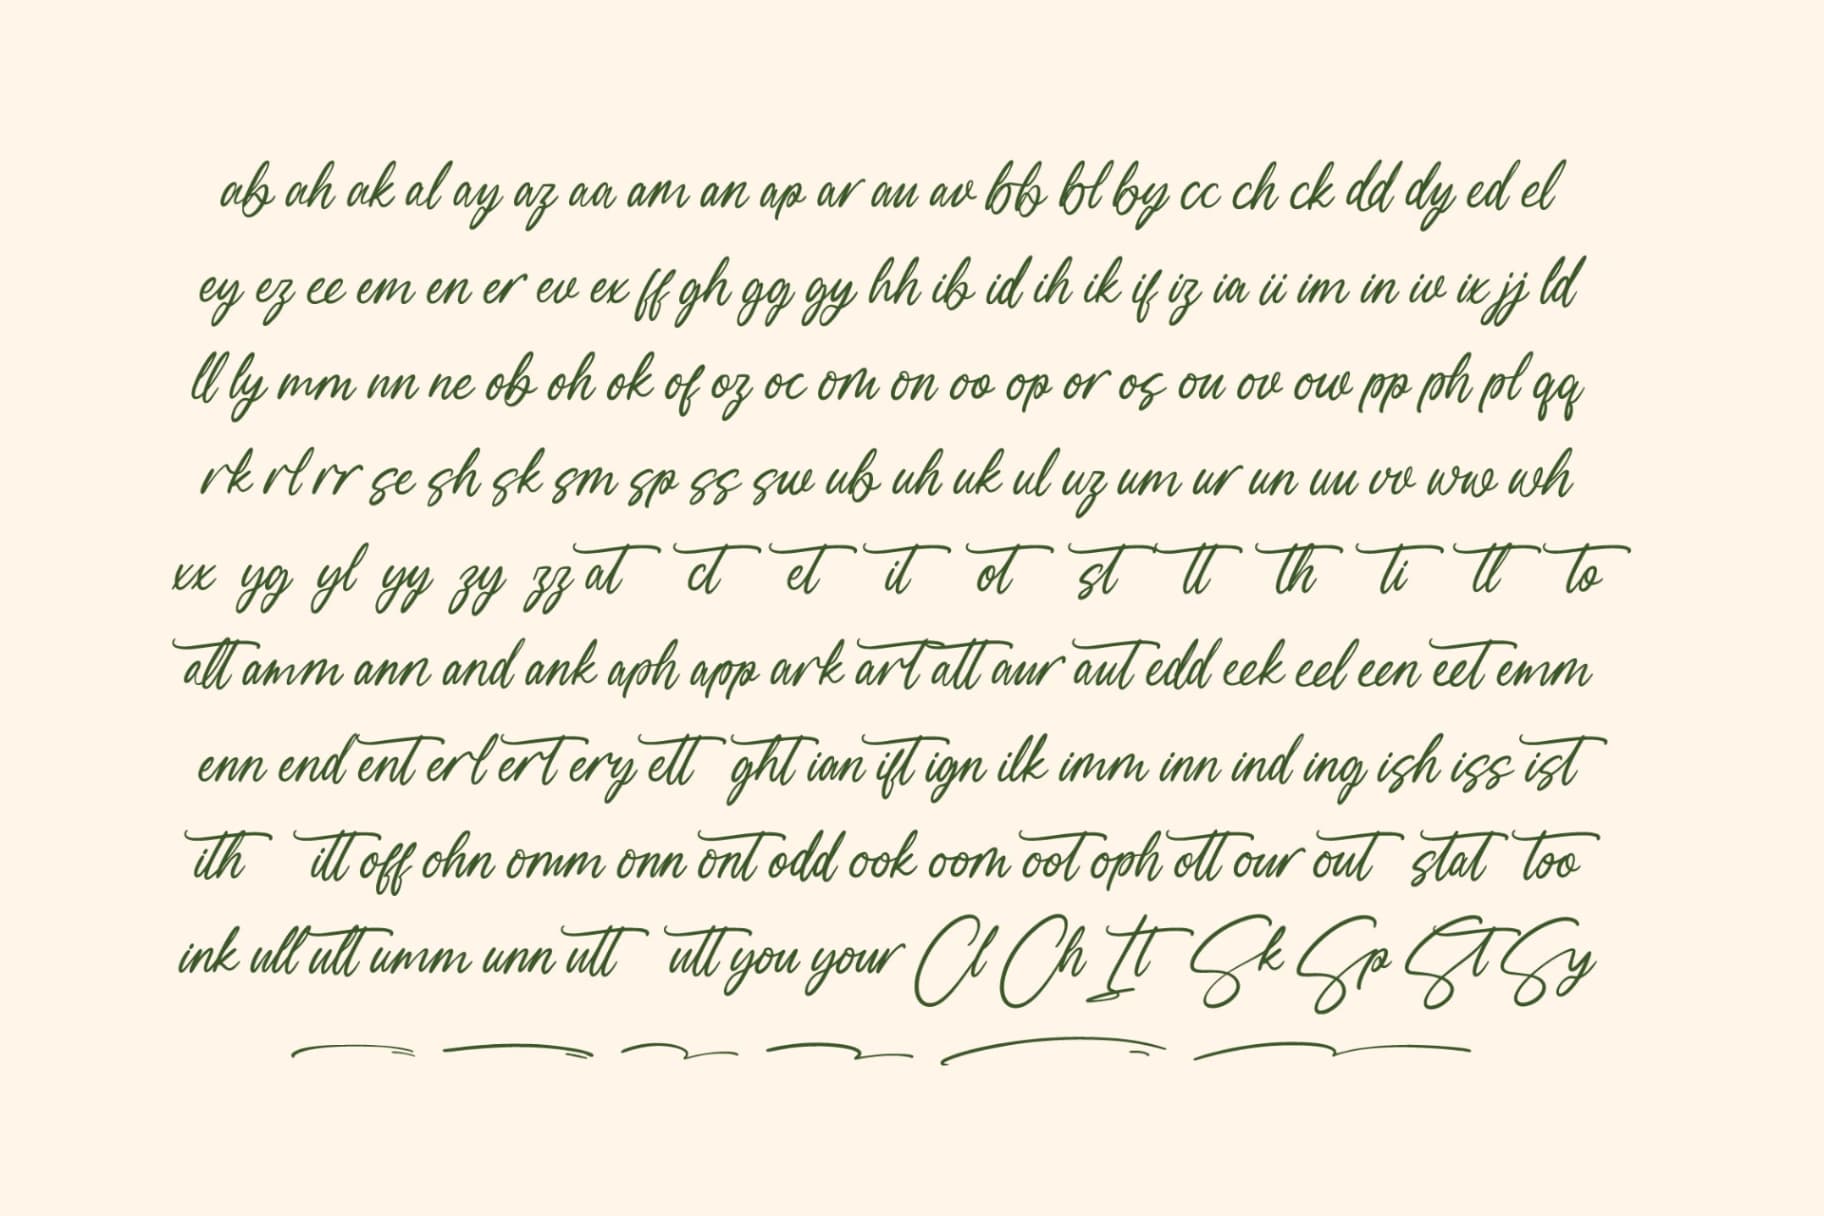 ab ah ak al ay az aa am an ap ar au av bb bl by cc ch ck dd dy ed el
ey ez ee em en er ev ex ff gh gg gy hh ib id ih ik if iz ia ii im in iv ix jj ld
ll ly mm nn ne ob oh ok of oz oc om on oo op or os ou ov ow pp ph pl qq
rk rl rr se sh sk sm sp ss sw ub uh uk ul uz um ur un uu vv ww wh
xx yg yl yy zy zz at ct et it ot st tt th ti tl to
alt amm ann and ank aph app ark art att aur aut edd eek eel een eet emm
enn end ent erl ert ery ett ght ian ift ign ilk imm inn ind ing ish iss ist
ith itt off ohn omm onn ont odd ook oom oot oph ott our out stat too
ink ull ult umm unn utt utt you your Cl Ch It Sk Sp St Sy